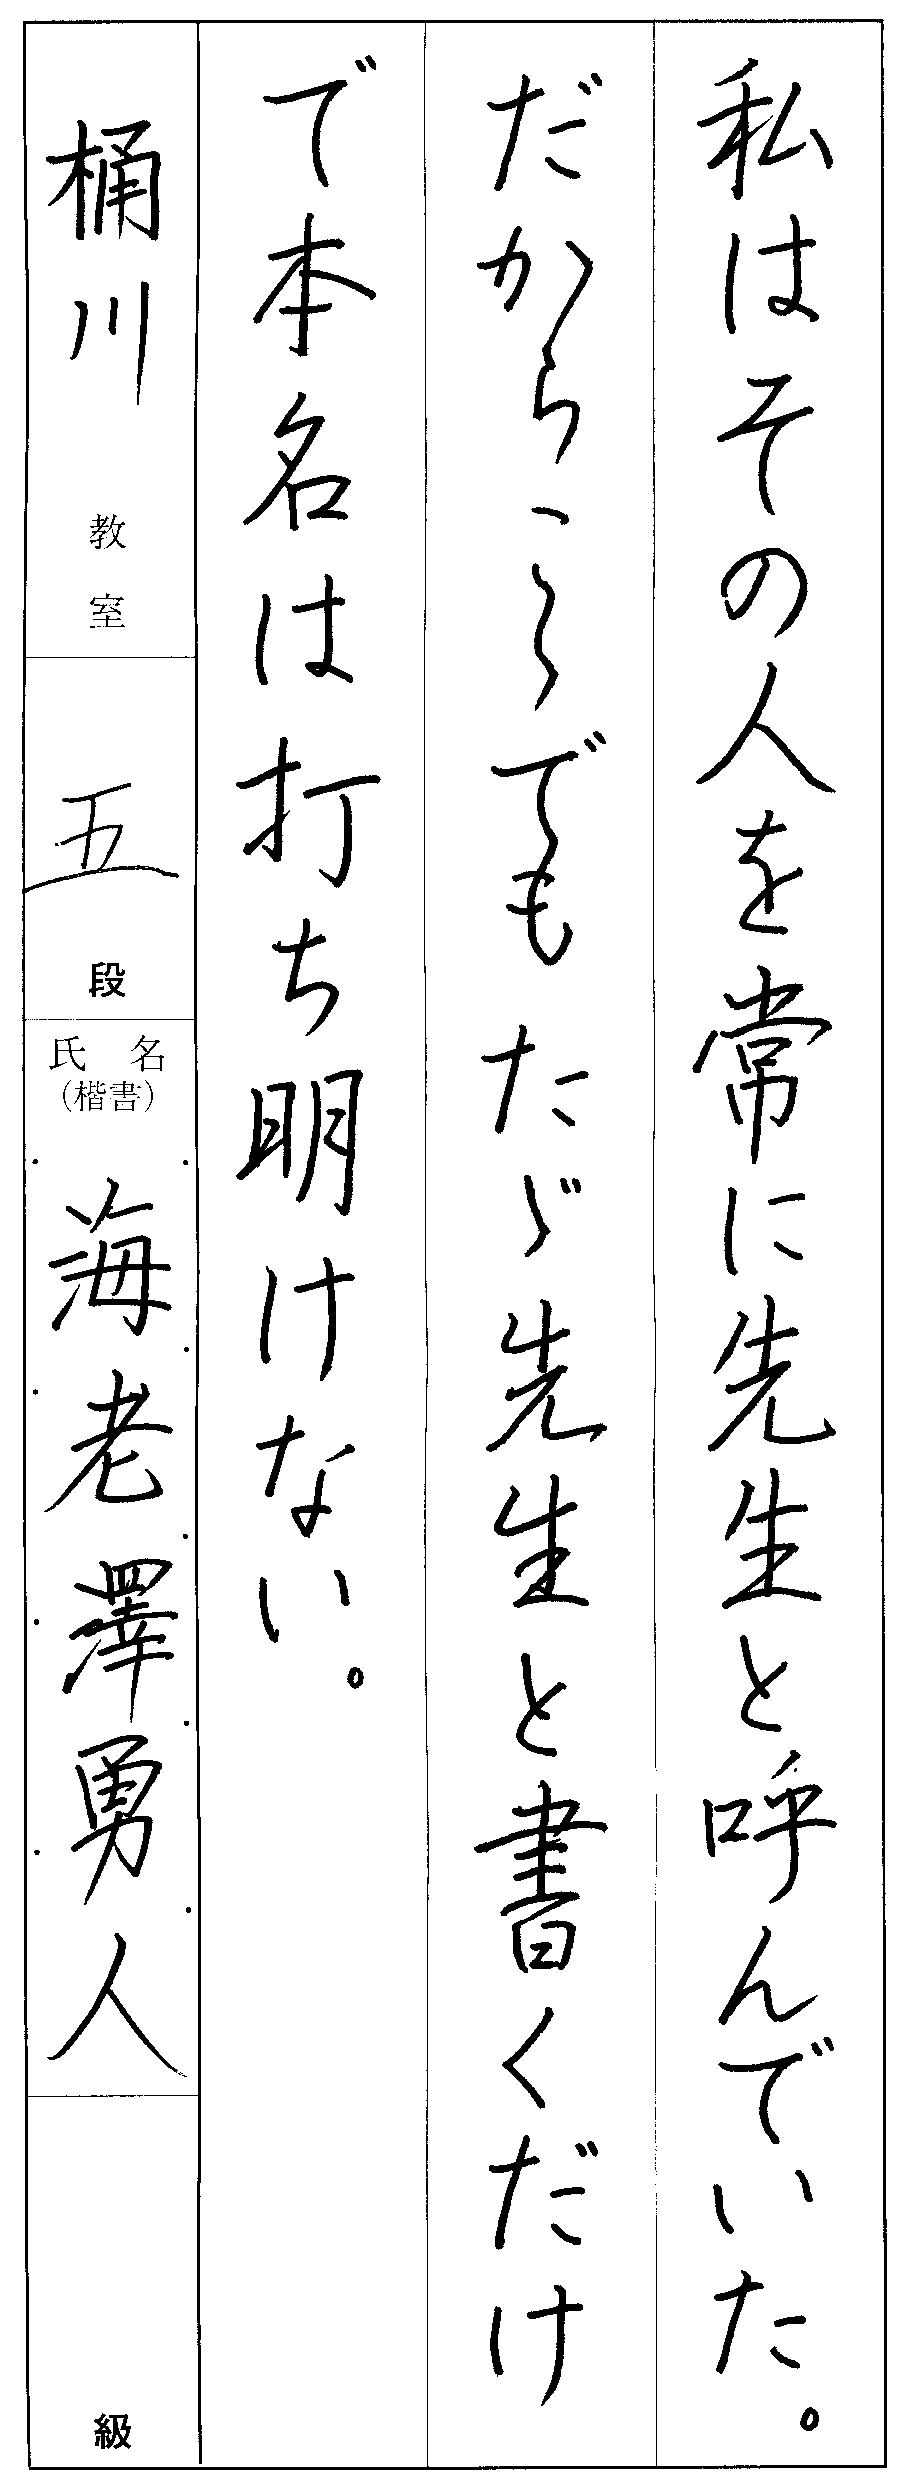 私はその人を常に先生と呼んでいた。
だからこゝでもたゞ先生と書くだけ
で本名は打ち明けない。
桶川 教室
五 段
氏名
(楷書)
海老澤勇人
級